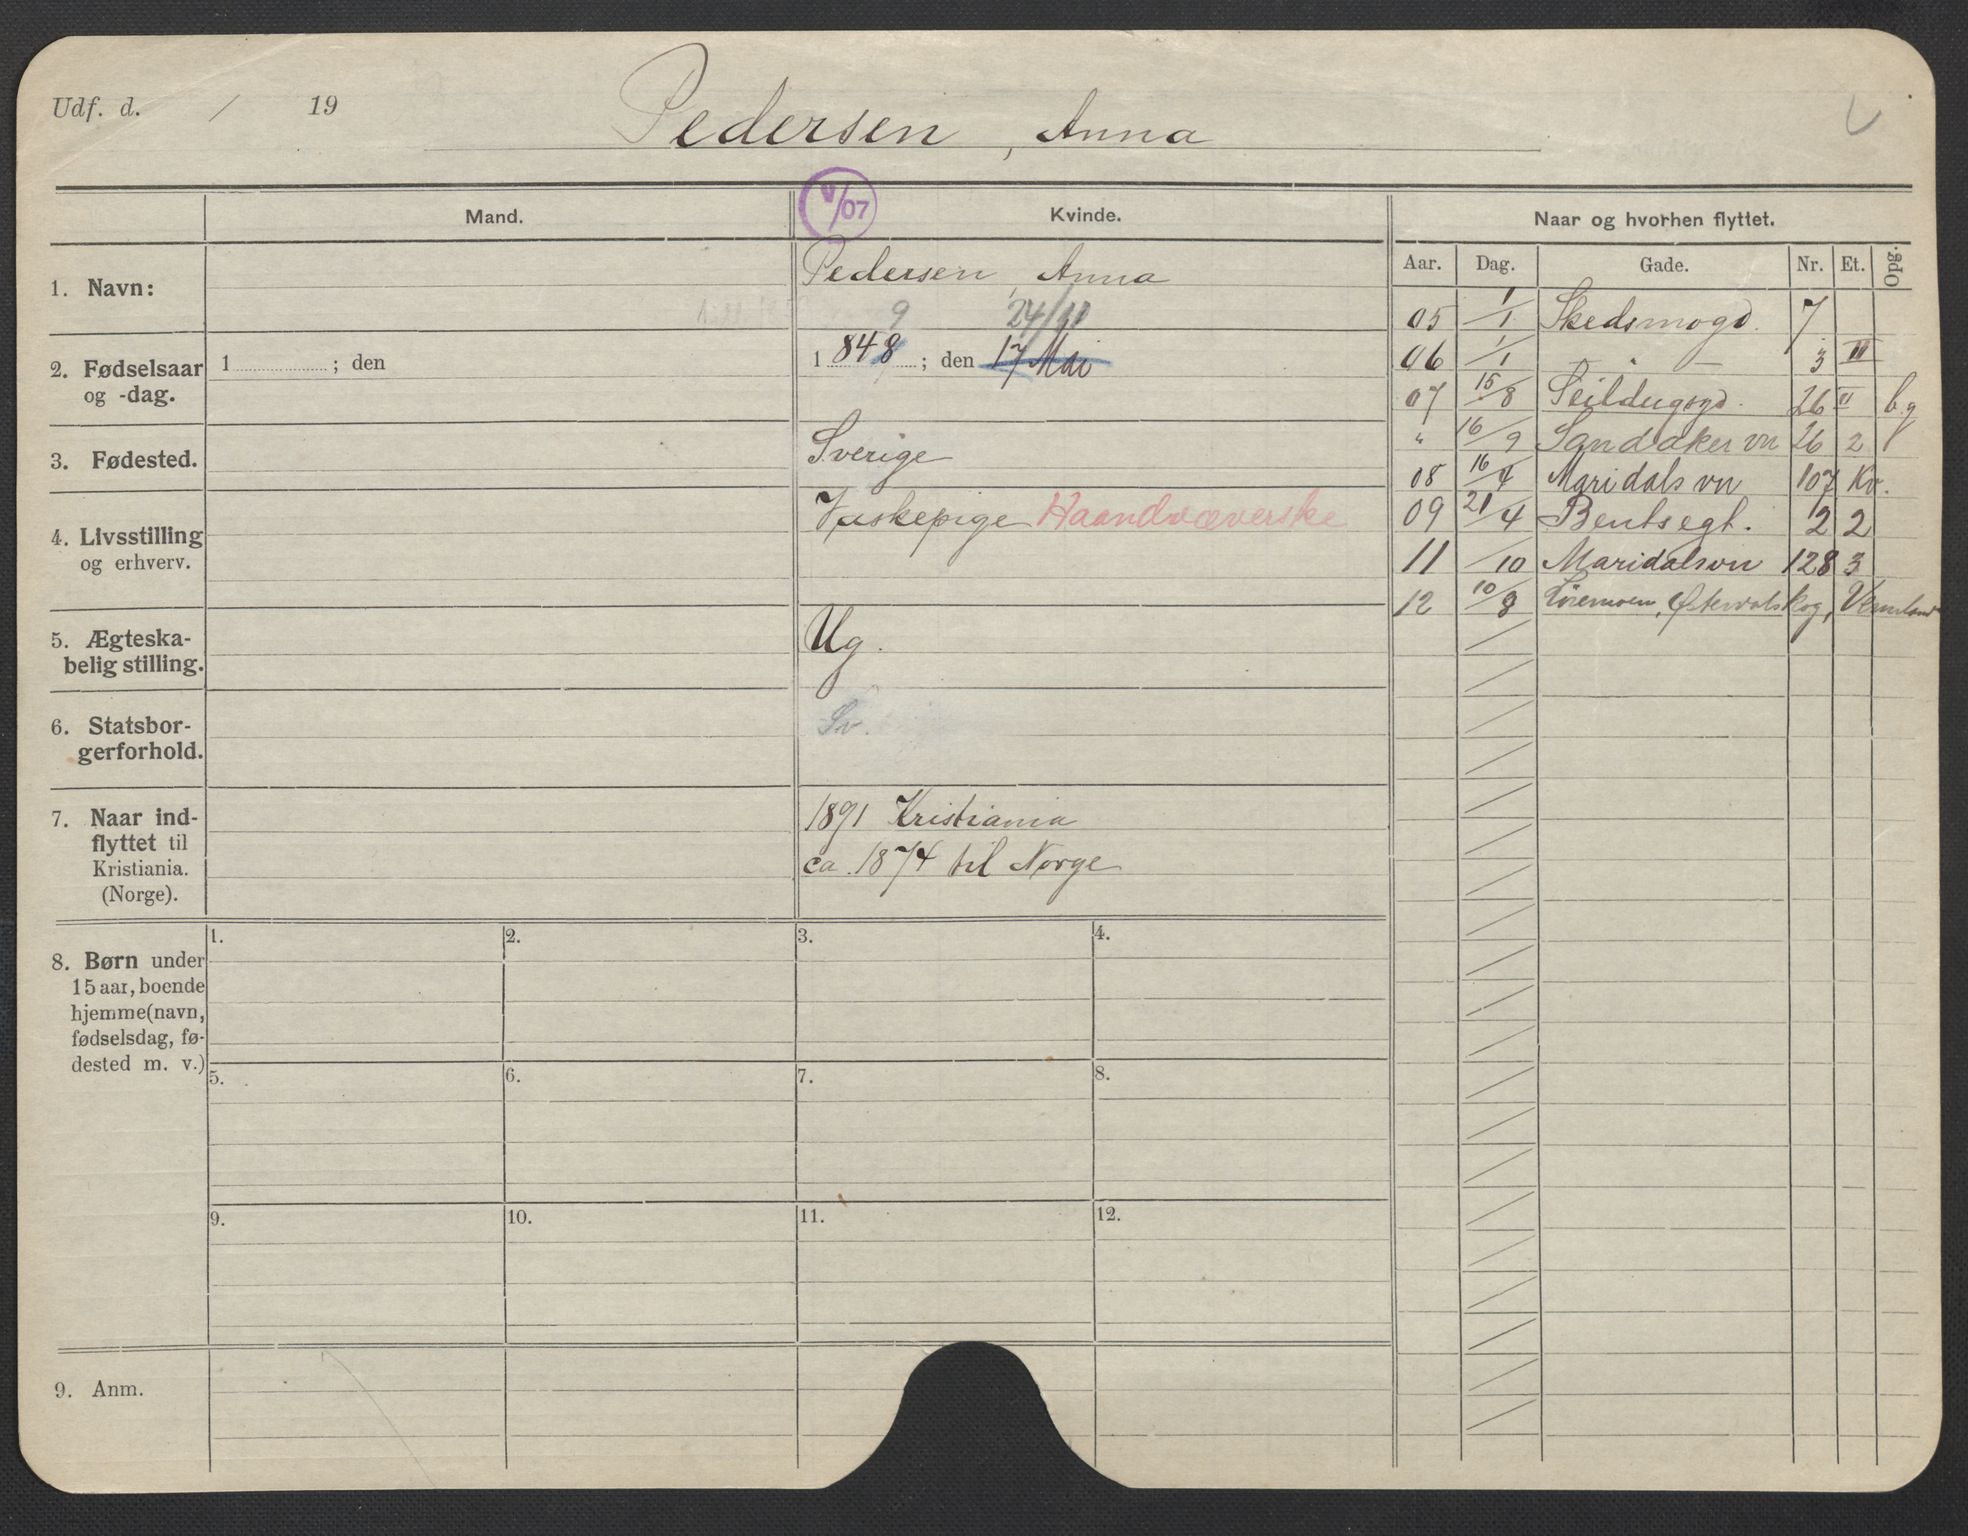 Udf. d. / 19
Pedersen, Anna
V/07
Mand.
Kvinde.
Naar og hvorhen flyttet.
Aar. Dag. Gade. Nr. Et. Opg.
1. Navn:
Pedersen, Anna
9 24/11
2. Fødselsaar og -dag.
1 ; den
1 848 ; den 17 Mai
3. Fødested.
Sverige
4. Livsstilling og erhverv.
Vaskepige Haandvæverske
5. Ægteska-
belig stilling.
Ug.
6. Statsbor-
gerforhold.
Sv.
7. Naar ind-
flyttet til
Kristiania.
(Norge).
1891 Kristiania
ca. 1874 til Norge
05 1/1 Skedsmogd. 7
06 1/1 - " - 3 III
07 15/8 Seildugsgd. 26 II b.g
" 16/9 Sandaker vn 26 2
08 16/4 Maridals vn 107 Kv.
09 21/4 Bentsegt. 12 2
11 /10 Maridalsvn 128 3
12 10/8 Østervalskog, Vermland
8. Børn under
15 aar, boende
hjemme (navn,
fødselsdag, fø-
dested m. v.)
1. 2. 3. 4.
5. 6. 7. 8.
9. 10. 11. 12.
9. Anm.